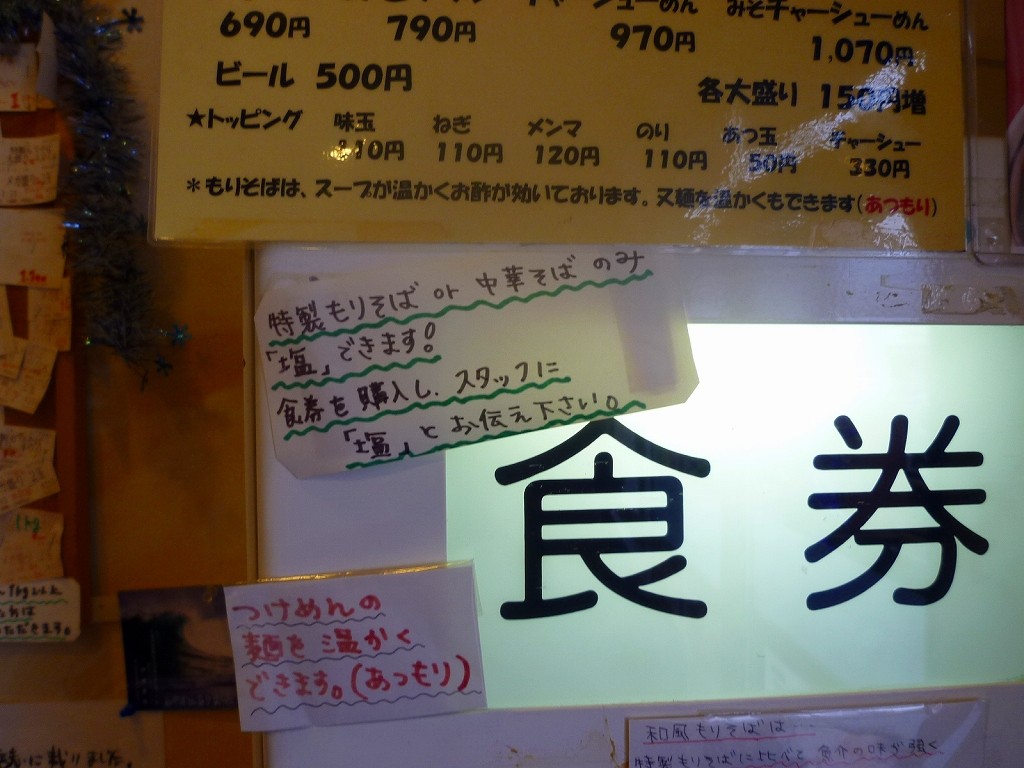 チャーシューめん みそチャーシューめん
690円 790円 970円 1,070円
ビール 500円
各大盛り 150円増
★トッピング 味玉 ねぎ メンマ のり あつ玉 チャーシュー
110円 110円 120円 110円 50円 330円
＊もりそばは、スープが温かくお酢が効いております。又麺を温かくもできます(あつもり)
特製もりそば or 中華そば のみ
「塩」できます!
食券を購入し、スタッフに
「塩」とお伝え下さい。
食券
つけめんの
麺を温かく
できます。(あつもり)
和風もりそばは…
特製もりそばに比べて魚介の味が強く
1kg
に載りました。